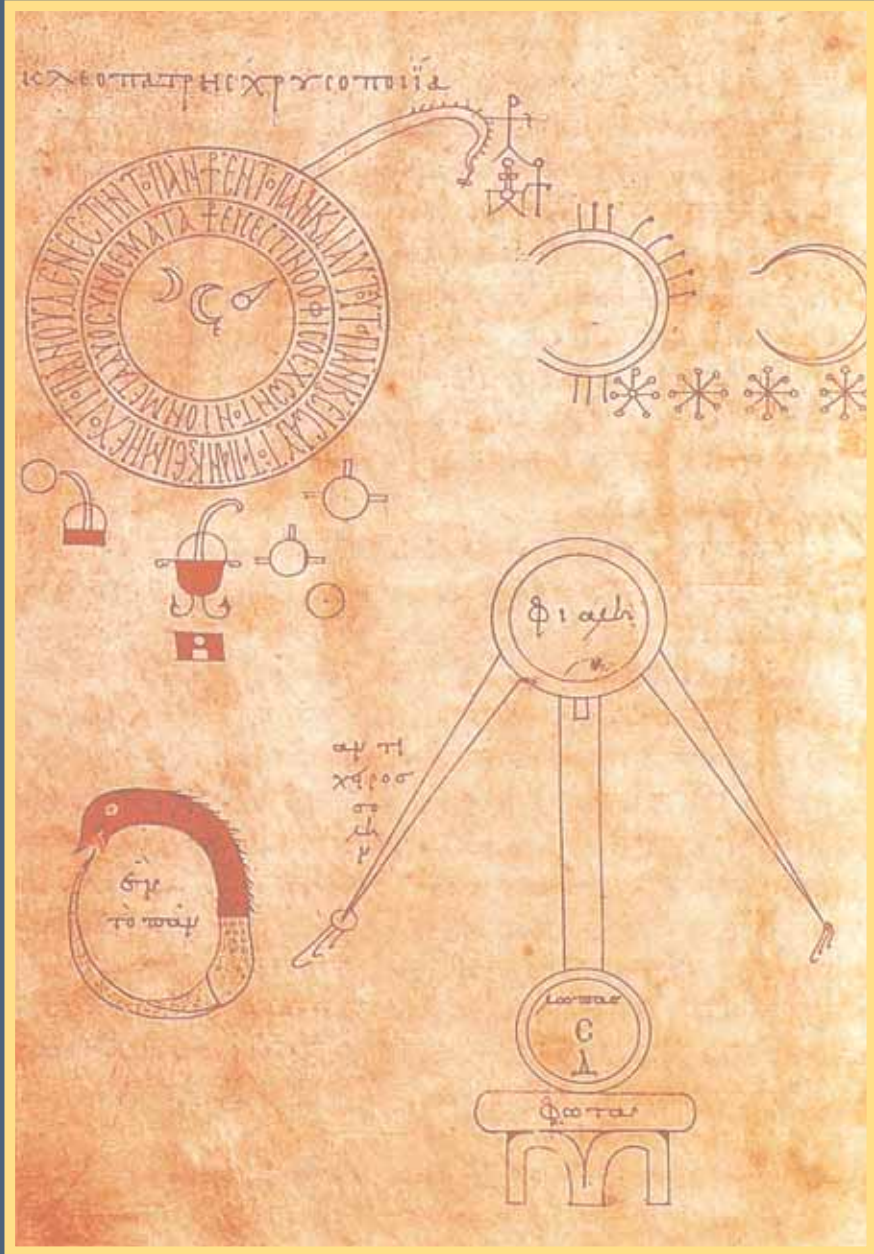 ΚΛΕΟΠΑΤΡΗϹ ΧΡΥϹΟΠΟΙΪΑ
ΕΝ ΤΟ ΠΑΝ ΚΑΙ ΔΙ ΑΥΤΟΥ ΤΟ ΠΑΝ ΚΑΙ ΕΙϹ ΑΥΤΟ ΤΟ ΠΑΝ ΚΑΙ ΕΙ ΜΗ ΕΧΟΙ ΤΟ ΠΑΝ ΟΥΔΕΝ ΕϹΤΙΝ ΤΟ ΠΑΝ
ΕΙϹ ΕϹΤΙΝ Ο ΟΦΙϹ Ο ΕΧΩΝ ΤΟΝ ΙΟΝ ΜΕΤΑ ΔΥΟ ϹΥΝΘΕΜΑΤΑ
φιαλη
αντι
χερος
σω
λη
ν
ἓν
τὸ παν
λωπας
φωτα